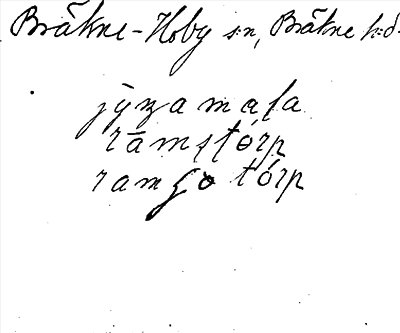 Bräkne-Hoby sn, Bräkne hd.
jỹnamala
rāmstórp
ramsotórp